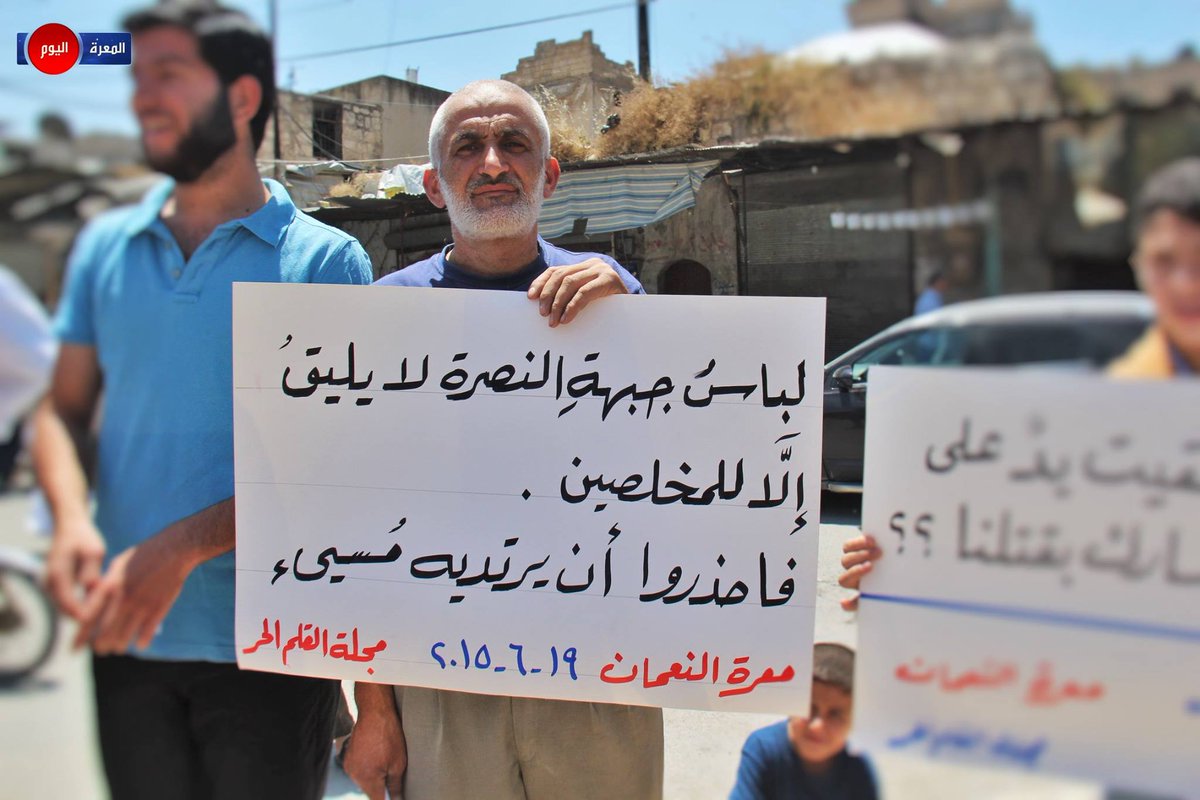 المعرة اليوم
لباسُ جبهةِ النصرة لا يليقُ
إلَّا للمخلصين .
فاحذروا أن يرتديه مُسيىء
معرة النعمان ١٩-٦-٢٠١٥ مجلة القلم الحر
يدٌ على
بقتلنا ؟؟
معرة النعمان